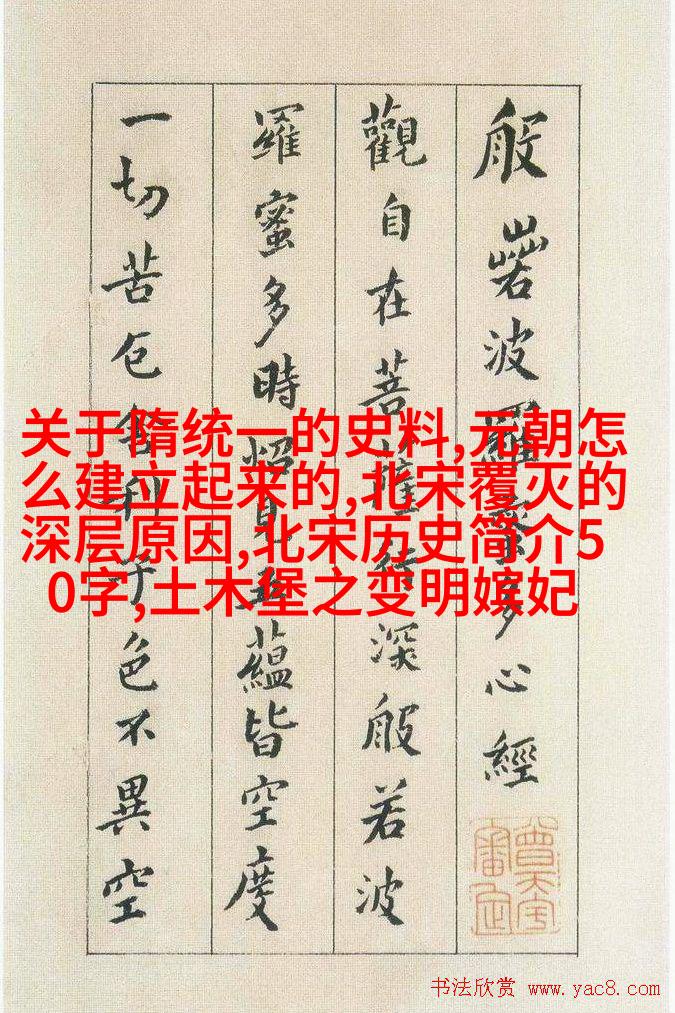 般若波羅蜜多心經
觀自在菩薩行深般若波
羅蜜多時照見五蘊皆空度
一切苦厄舍利子色不異空
关于隋统一的史料,元朝怎
么建立起来的,北宋覆灭的
深层原因,北宋历史简介5
0字,土木堡之变明嫔妃
书法欣赏 www.yac8.com